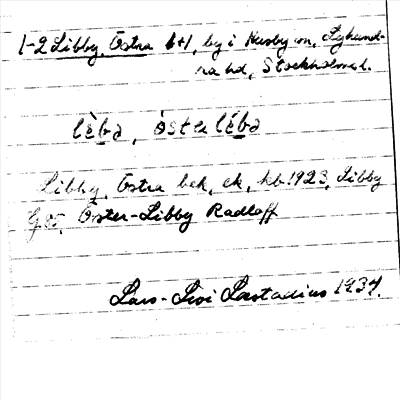 1-2 Libby, Östra b+1, by i Husby sn, Lyhund-
ra hd, Stockholms l.
lèbə, östər lèbə
Libby, Östra bek, ek, kb 1923, Libby
GK, Öster-Libby Radloff
Lars-Levi Læstadius 1937.